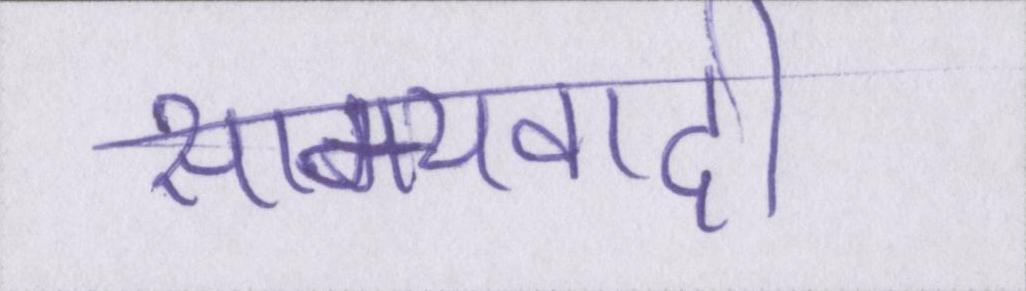 साम्यवादी